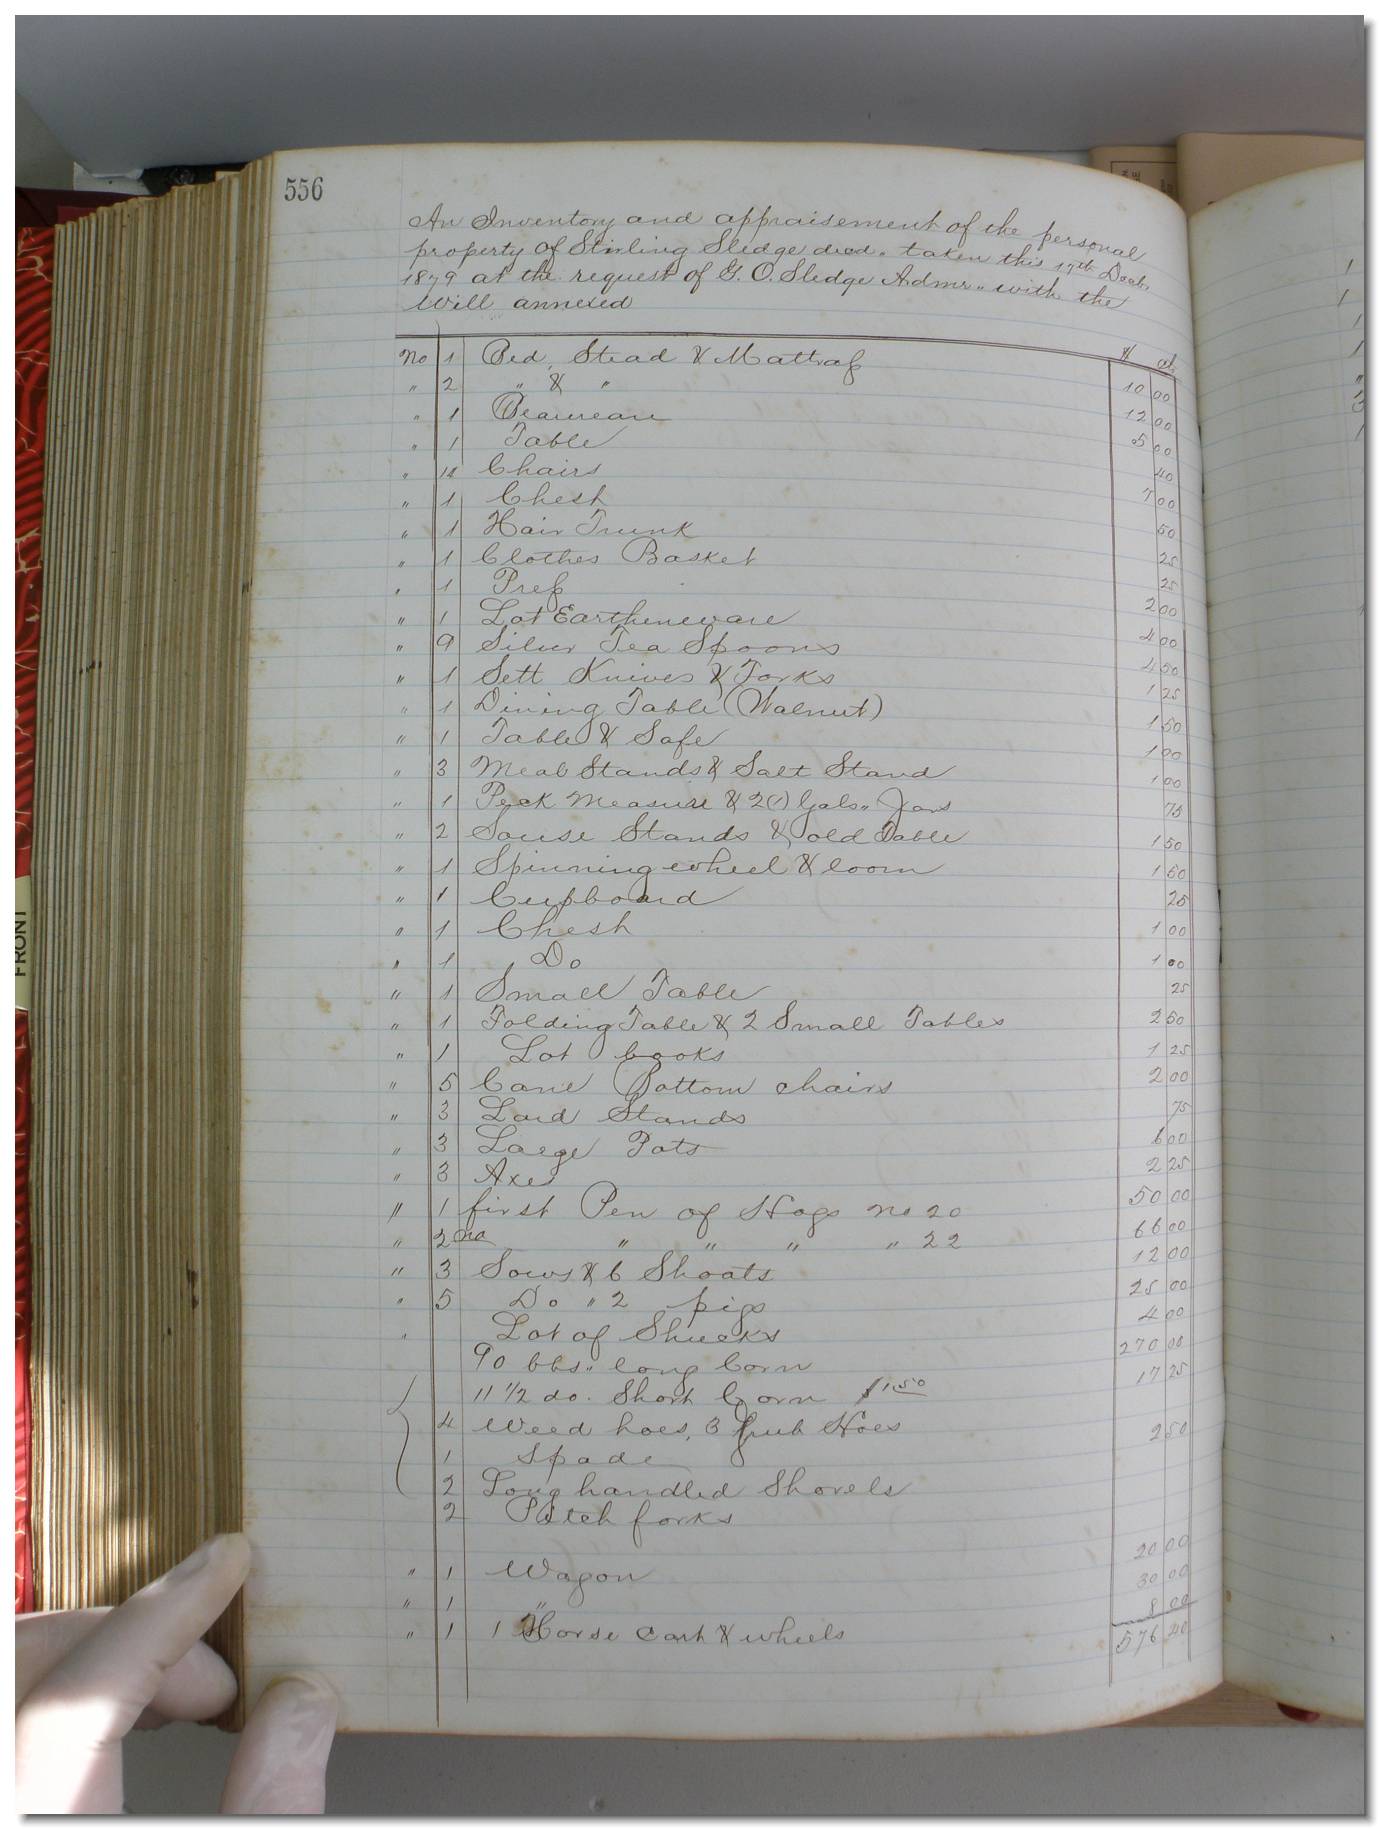 556
An Inventory and appraisement of the personal
property of Stirling Sledge decd. taken this 17th Decb.
1879 at the request of G. O. Sledge Admr.. with the
Will annexed
$ cts
No 1 Bed, Stead & Mattrass 10 00
" 2 " & " 12 00
" 1 Beaureau 5 00
" 1 Table 40
" 12 Chairs 7 00
" 1 Chest 50
" 1 Hair Trunk 25
" 1 Clothes Basket 25
" 1 Press 2 00
" 1 Lot Eartheneware 4 00
" 9 Silver Tea Spoons 4 50
" 1 Sett Knives & Forks 1 25
" 1 Dining Table (Walnut) 1 50
" 1 Table & Safe 1 00
" 3 Meal Stands & Salt Stand 1 00
" 1 Peck Measure & 2(1) Gals.. Jars 75
" 2 Souse Stands & old Table 1 50
" 1 Spinning wheel & loom 1 50
" 1 Cupboard 25
" 1 Chest 1 00
" 1 Do 1 00
" 1 Small Table 25
" 1 Folding Table & 2 Small Tables 2 50
" 1 Lot books 1 25
" 5 Cane Bottom chairs 2 00
" 3 Lard Stands 75
" 3 Large Pots 6 00
" 3 Axes 2 25
" 1 first Pen of Hogs no 20 50 00
" 2nd " " " " 22 66 00
" 3 Sows & 6 Shoats 12 00
" 5 Do " 2 pigs 25 00
" Lot of Shucks 4 00
90 bbs.. long Corn 270 00
11 1/2 do. Short Corn $1.50 17 25
4 Weed hoes, 3 Grub Hoes 2 50
1 Spade
2 Long handled Shovels
2 Pitch forks
" 1 Wagon 20 00
" 1 " 30 00
" 1 1 Horse cart & wheels 8 00
576 40
FRONT